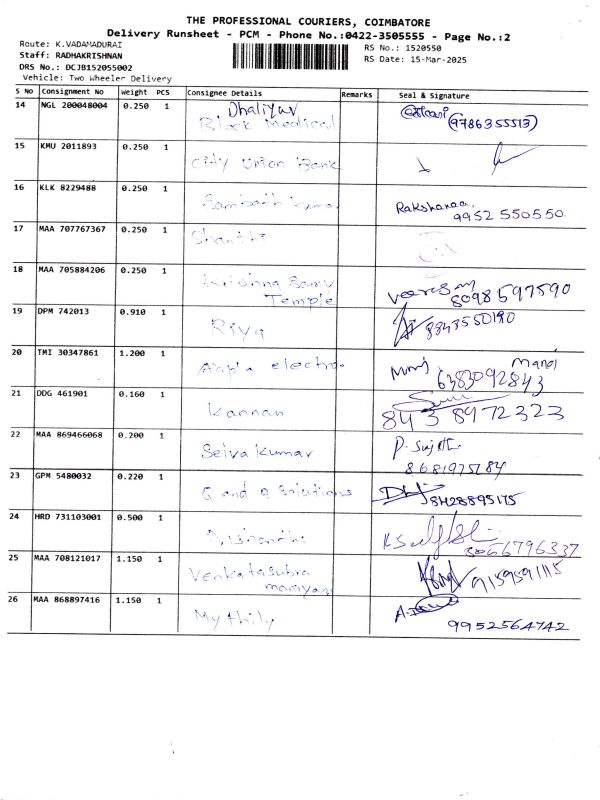 THE PROFESSIONAL COURIERS, COIMBATORE
Delivery Runsheet - PCM - Phone No.:0422-3505555 - Page No.:2
Route: K.VADAMADURAI
RS No.: 1520550
Staff: RADHAKRISHNAN
RS Date: 15-Mar-2025
DRS No.: DCJB152055002
Vehicle: Two Wheeler Delivery
S No Consignment No Weight PCS Consignee Details Remarks Seal & Signature
14 NGL 200048004 0.250 1 Dhaliyar
Block Medical (9786355513)
15 KMU 2011893 0.250 1
City Union Bank
16 KLK 8229488 0.250 1
Sambath Kumar Rakshanaa
9952 550550
17 MAA 707767367 0.250 1
Shanthi
18 MAA 705884206 0.250 1
Krishna Samy
Temple 8098597590
19 DPM 742013 0.910 1
Riya 8843550190
20 TMI 30347861 1.200 1
electro Mani
6383092843
21 DDG 461901 0.160 1
Kannan 8438972323
22 MAA 869466068 0.200 1
Selva Kumar
8681975184
23 GPM 5480032 0.220 1
G and G Solutions 8428895175
24 HRD 731103001 0.500 1
796337
25 MAA 708121017 1.150 1
Venkatasubra
maniyan 9159591115
26 MAA 868897416 1.150 1
Mythily 9952564742